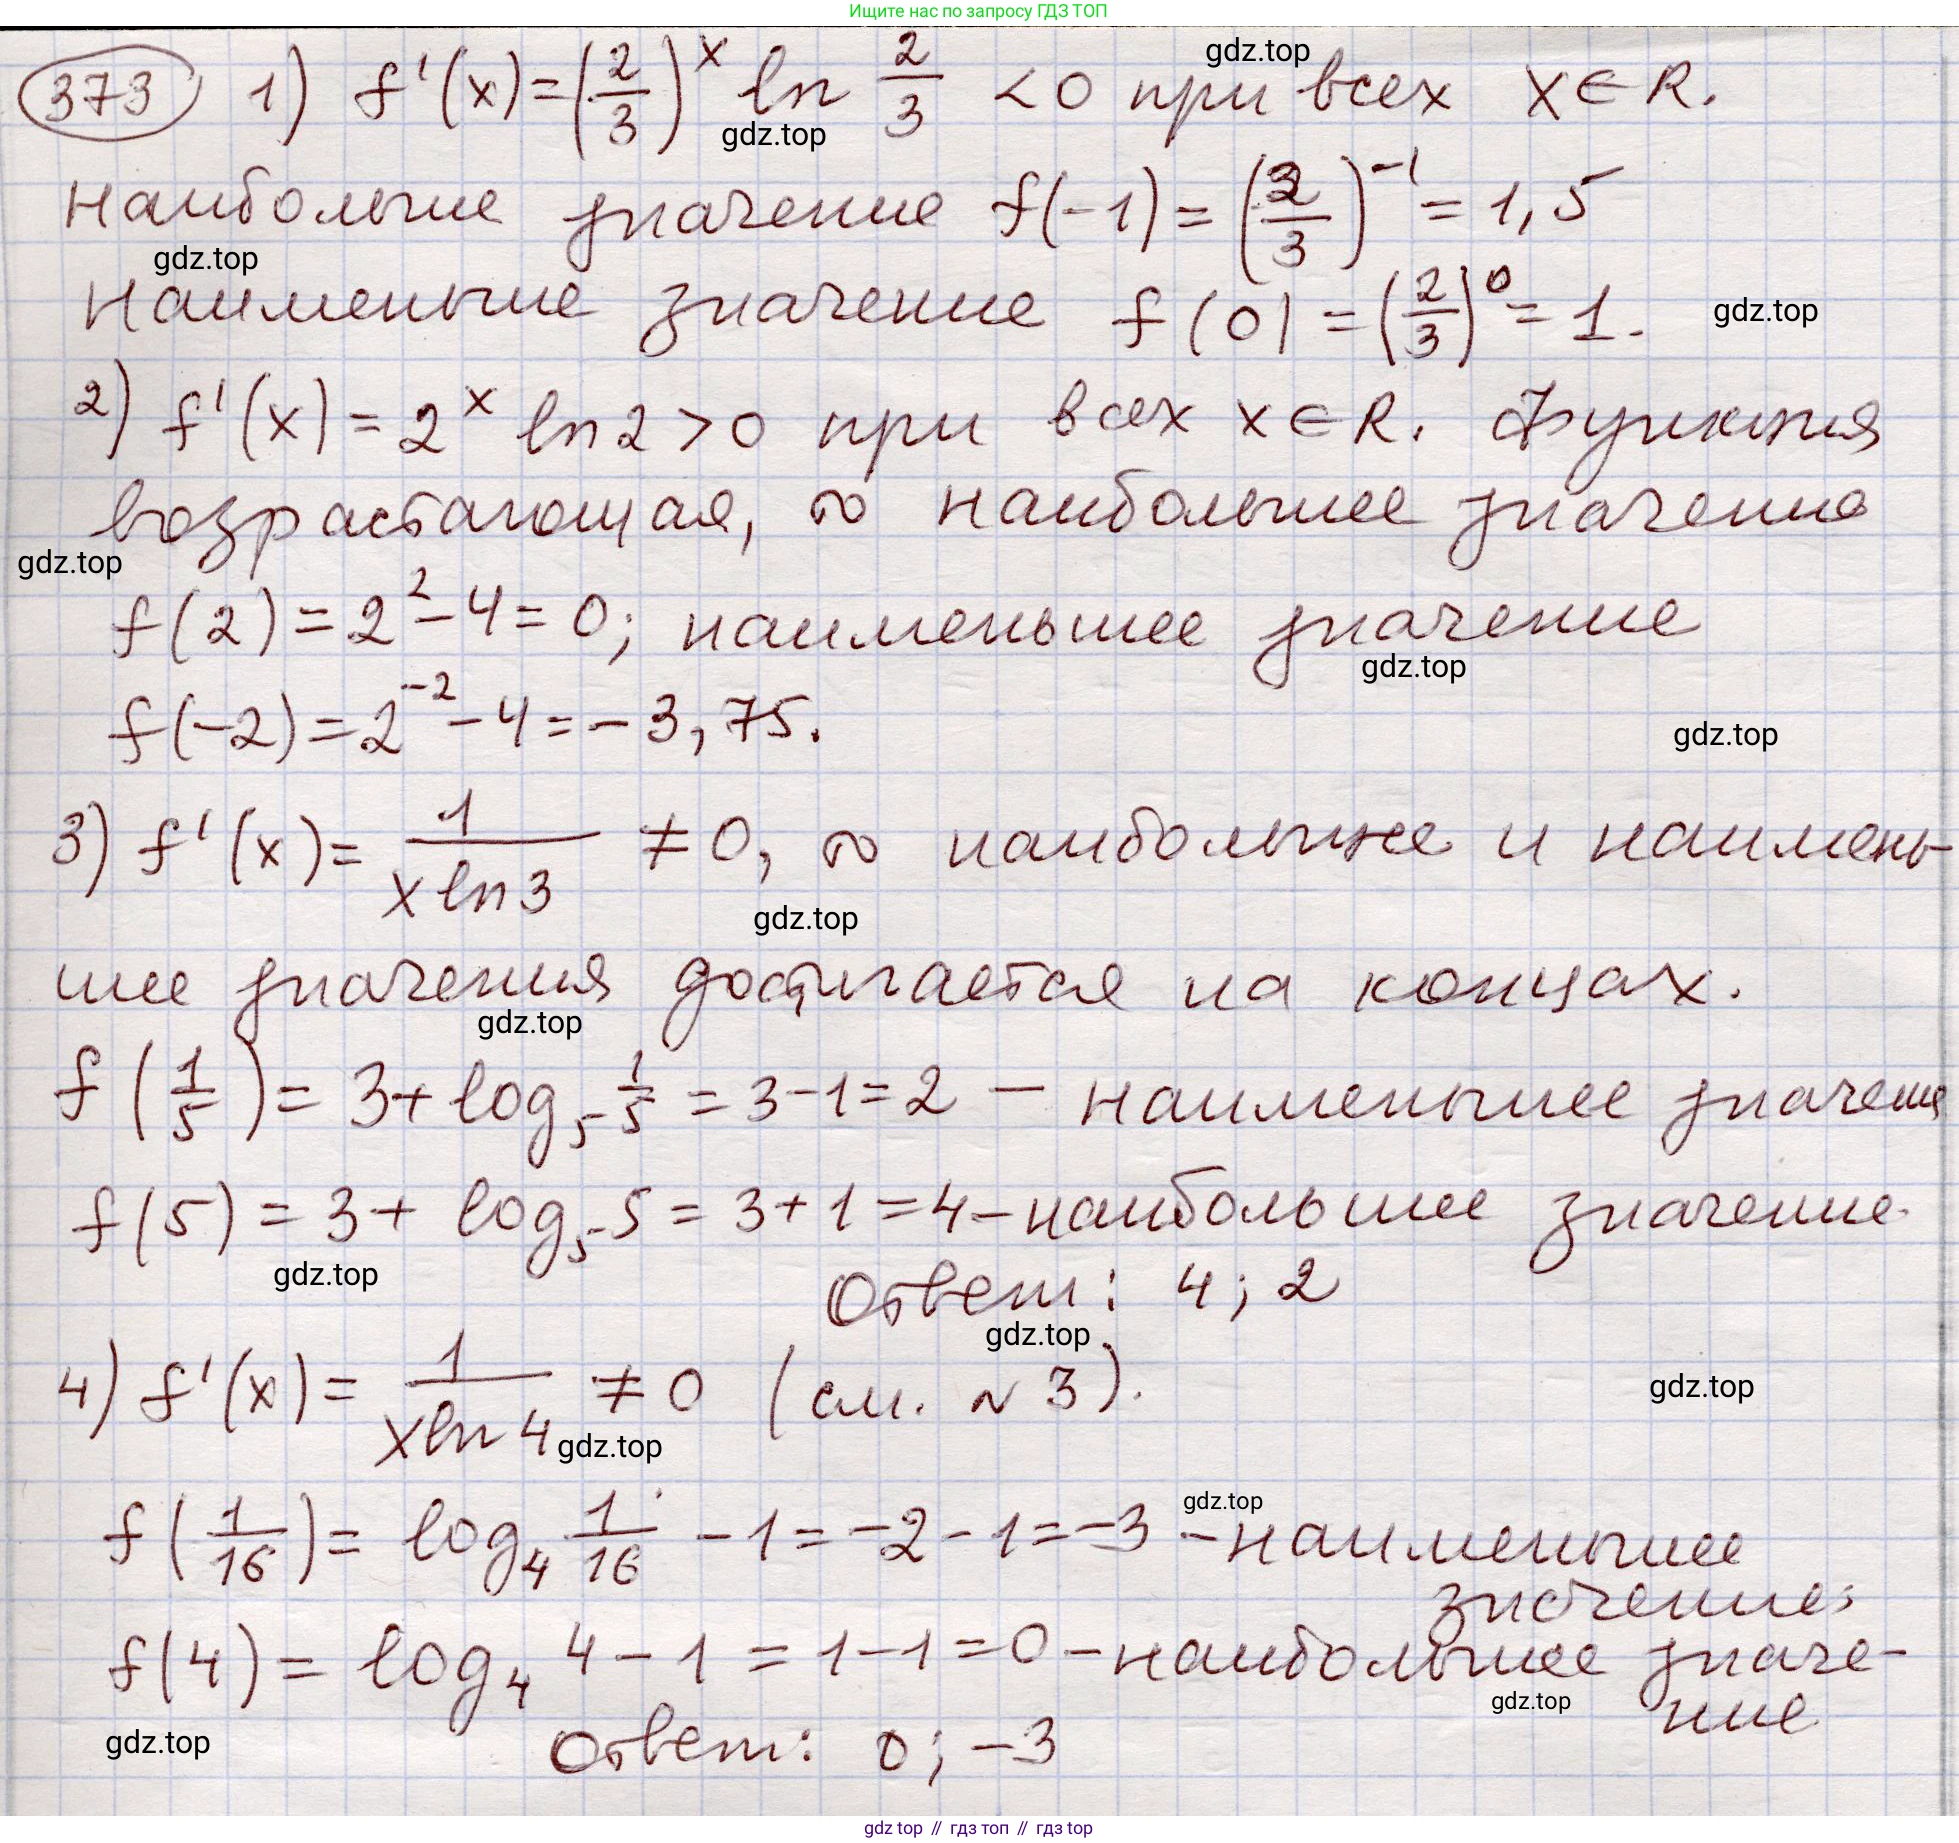 Ищите нас по запросу ГДЗ ТОП
373 1) f'(x) = (2/3)^x ln 2/3 < 0 при всех x ∈ R.
gdz.top
gdz.top
наибольшие значение f(-1) = (2/3)^-1 = 1,5
gdz.top
наименьшие значение f(0) = (2/3)^0 = 1.
gdz.top
2) f'(x) = 2^x ln2 > 0 при всех x ∈ R. Функция
возрастающая, ∞ наибольшее значение
gdz.top
f(2) = 2^2 - 4 = 0; наименьшее значение
gdz.top
f(-2) = 2^-2 - 4 = -3,75.
gdz.top
3) f'(x) = 1/(x ln 3) ≠ 0, ∞ наибольшее и наимень-
gdz.top
шее значения достигается на концах.
gdz.top
f(1/5) = 3 + log_5 1/5 = 3 - 1 = 2 — наименьшее значени
f(5) = 3 + log_5 5 = 3 + 1 = 4 - наибольшее значение.
gdz.top
Ответ: 4; 2
gdz.top
4) f'(x) = 1/(x ln 4) ≠ 0 (см. ~ 3).
gdz.top
gdz.top
gdz.top
f(1/16) = log_4 1/16 - 1 = -2 - 1 = -3 - наименьшее
значение;
f(4) = log_4 4 - 1 = 1 - 1 = 0 - наибольшее значе-
ние
gdz.top
gdz.top
Ответ: 0; -3
gdz top // гдз топ // гдз top